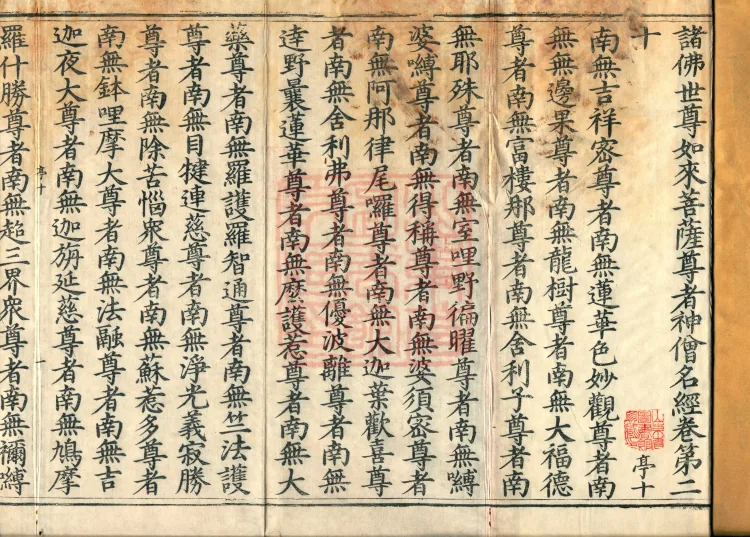 諸佛世尊如來菩薩尊者神僧名經卷第二
十 亭十
南無吉祥密尊者南無蓮華色妙觀尊者南
無無邊果尊者南無龍樹尊者南無大福德
尊者南無富樓那尊者南無舍利子尊者南
無耶殊尊者南無室哩野徧曜尊者南無嚩
婆嚩尊者南無得稱尊者南無婆須密尊者
南無阿那律尾囉尊者南無大迦葉歡喜尊
者南無舍利弗尊者南無優波離尊者南無
達野曩蓮華尊者南無麽護惹尊者南無大
藥尊者南無羅護羅智通尊者南無竺法護
尊者南無目犍連慈尊者南無淨光義寂勝
尊者南無除苦惱衆尊者南無蘇惹多尊者
南無鉢哩摩大尊者南無法融尊者南無吉
迦夜大尊者南無迦旃延慈尊者南無鳩摩
亭十 一
羅什勝尊者南無超三界衆尊者南無禰嚩